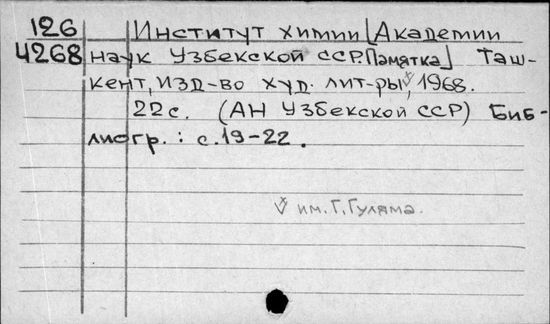 126 Институт химии [Академии
4268 наук Узбекской ССР. Памятка] Таш-
кент, изд-во худ. лит-ры √, 1968.
22 с. (АН Узбекской ССР) Биб-
лиогр.: с. 19-22.
√ им. Г. Гуляма.